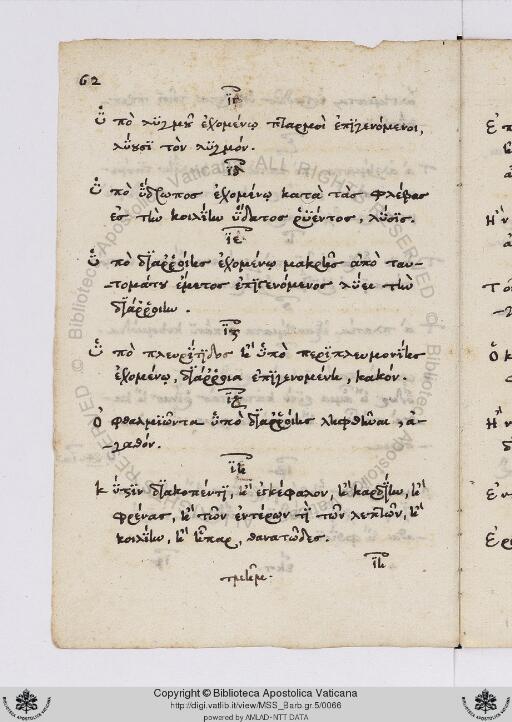 62
ιγ
Ὑπὸ λυγμοῦ ἐχομένῳ πταρμοὶ ἐπιγενόμενοι,
λύουσι τὸν λυγμόν.
ιδ
Ὑπὸ ὕδρωπος ἐχομένῳ κατὰ τὰς φλέβας
ἐς τὴν κοιλίην ὕδατος ῥυέντος, λύσις.
ιε
Ὑπὸ διαῤῥοίης ἐχομένῳ μακρῆς ἀπὸ ταυ-
-τομάτου ἔμετος ἐπιγενόμενος λύει τὴν
διάῤῥοιαν.
ις
Ὑπὸ πλευρίτιδος καὶ ὑπὸ περιπλευμονίης
ἐχομένῳ, διάῤῥοια ἐπιγενομένη, κακόν.
ιζ
Ὀφθαλμιῶντα ὑπὸ διαῤῥοίης ληφθῆναι, ἀ-
-γαθόν.
ιη
Κύστιν διακοπέντι, καὶ ἐγκέφαλον, καὶ καρδίην, καὶ
φρένας, καὶ τῶν ἐντέρων τι τῶν λεπτῶν, καὶ
κοιλίην, καὶ ἧπαρ, θανατῶδες.
ιη
τμῆμ.
Copyright © Biblioteca Apostolica Vaticana
http://digi.vatlib.it/view/MSS_Barb.gr.5/0066
powered by AMLAD-NTT DATA